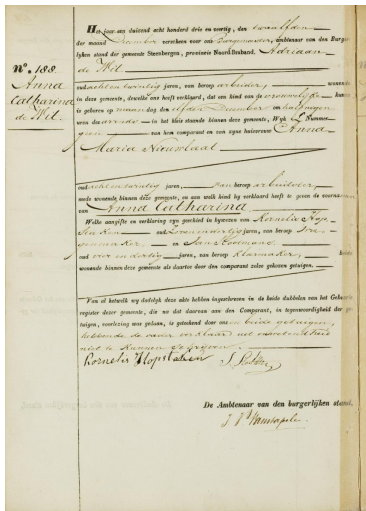 Het jaar een duizend acht honderd drie en veertig, den twaalfden
der maand December verscheen voor ons Burgemeester, ambtenaar van den Burger-
lijken stand der gemeente Steenbergen, provincie Noord-Braband. Adriaan
de Wit
N.° 188.
Anna
Catharina
de Wit.
oud acht en twintig jaren, van beroep arbeider, wonende
in deze gemeente, dewelke ons heeft verklaard, dat een kind van de vrouwelijke kunne
is geboren op maandag den elfden December en half negen
uren des avonds in het huis staande binnen deze gemeente, Wijk L Nummer
van hem comparant en van zijne huisvrouw Anna
Maria Nieuwlaat
oud acht en twintig jaren, van beroep arbeidster,
mede wonende binnen deze gemeente, en aan welk kind hij verklaard heeft te geven de voornamen
van Anna Catharina
Welke aangifte en verklaring zijn geschied in bijwezen van Kornelis Hop
staken oud jaren, van beroep
en Jan
oud vier en dertig jaren, van beroep kleermaker, beide
wonende binnen deze gemeente als daartoe door den comparant zelve gekozen getuigen.
Van al hetwelk wij dadelijk deze akte hebben ingeschreven in de beide dubbelen van het Geboorte
register dezer gemeente, die na dat daarvan aan den Comparant, in tegenwoordigheid der ge-
tuigen, voorlezing was gedaan, is geteekend door ons en beide getuigen,
hebbende de vader verklaard uit onkunde
niet te kunnen schrijven
Kornelis Hopstaken
De Ambtenaar van den burgerlijken stand.